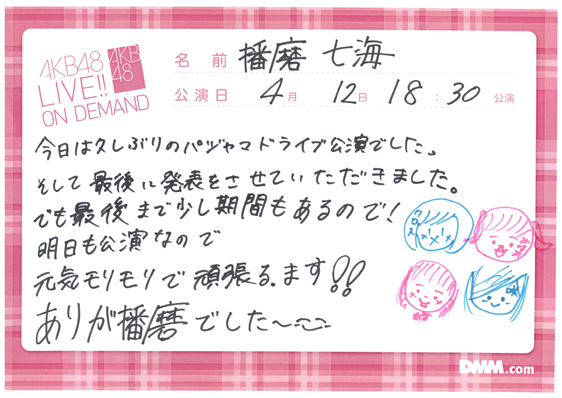 AKB48
LIVE!!
ON DEMAND
AKB
48
名前 播磨 七海
公演日 4月 12日 18:30 公演
今日は久しぶりのパジャマドライブ公演でした。
そして最後に発表をさせていただきました。
でも最後まで少し期間もあるので!
明日も公演なので
元気モリモリで頑張る。ます!!
ありが播磨でした〜
クロス
DMM.com